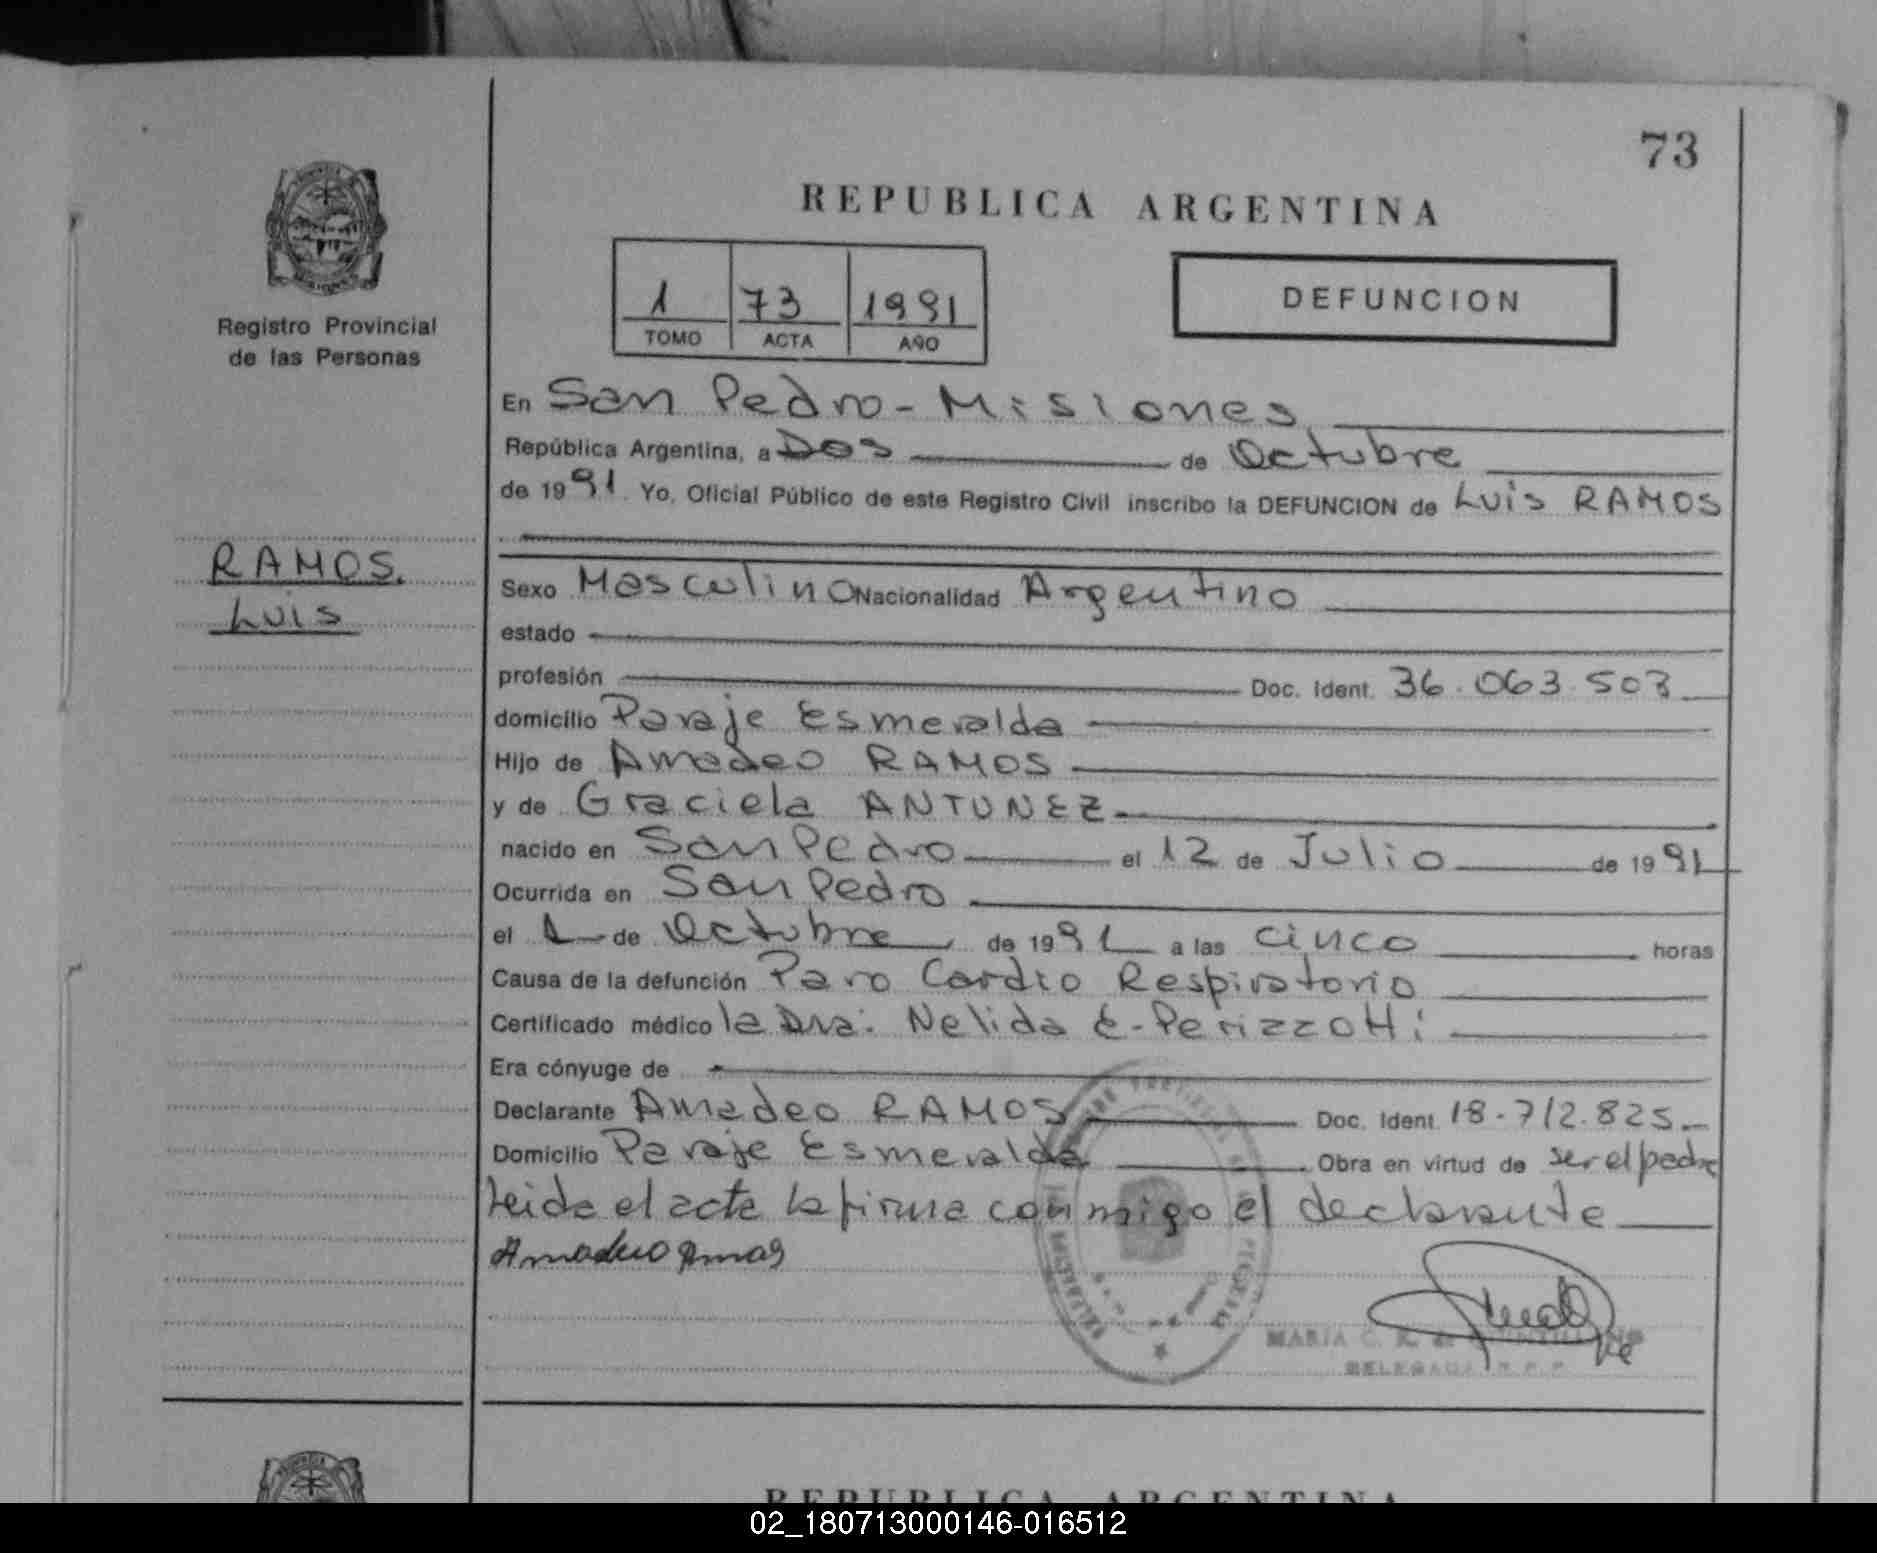 73
REPUBLICA ARGENTINA
Registro Provincial
de las Personas
1 73 1991
TOMO ACTA AÑO
DEFUNCION
En San Pedro - Misiones
República Argentina, a Dos de Octubre
de 1991 Yo, Oficial Público de este Registro Civil inscribo la DEFUNCION de Luis RAMOS
RAMOS.
Luis
Sexo Masculino Nacionalidad Argentino
estado
profesión Doc. Ident. 36.063.503
domicilio Paraje Esmeralda
Hijo de Amadeo RAMOS
y de Graciela ANTUNEZ
nacido en San Pedro el 12 de Julio de 1991
Ocurrida en San Pedro
el 1 de Octubre de 1991 a las cinco horas
Causa de la defunción Paro Cardio Respiratorio
Certificado médico la Dra. Nelida E. Perizzotti
Era cónyuge de
Declarante Amadeo RAMOS Doc. Ident. 18.712.825
Domicilio Paraje Esmeralda Obra en virtud de ser el padre
Leida el acta la firma conmigo el declarante
MARIA C.
DELEGADA R.P.P.
REPUBLICA ARGENTINA
02_180713000146-016512